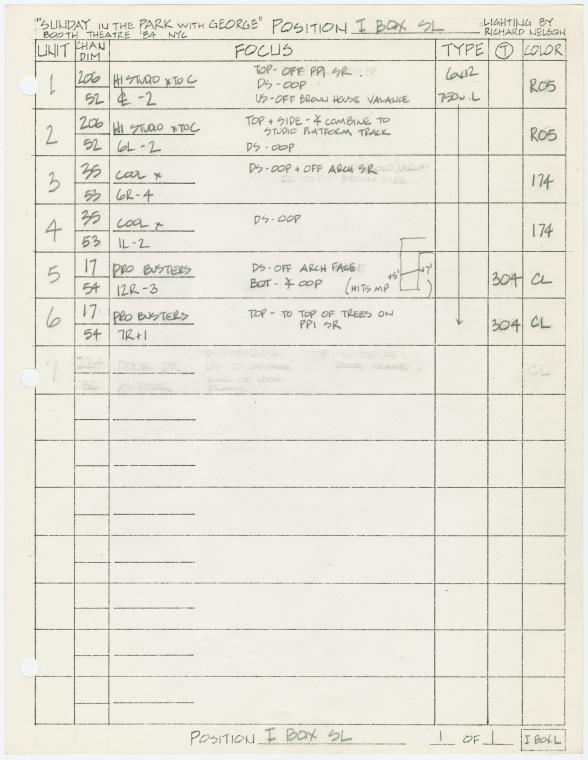 "SUNDAY IN THE PARK WITH GEORGE" POSITION I BOX SL LIGHTING BY
BOOTH THEATRE '84 NYC RICHARD NELSON
UNIT CHAN DIM FOCUS TYPE T COLOR
1 206 HI STUDIO X TO C TOP - OFF PP1 SR. 6x12 R05
DS - OOP
52 ℄ -2 US - OFF BROWN HOUSE VALANCE 750w.L
2 206 HI STUDIO X TO C TOP + SIDE - ∡ COMBINE TO R05
STUDIO PLATFORM TRACK
52 6L -2 DS - OOP
3 35 COOL X DS - OOP + OFF ARCH SR 174
53 6R -4
4 35 COOL X DS - OOP 174
53 1L -2
5 17 PRO BUSTERS DS - OFF ARCH FACE +5' +7' 304 CL
54 12R -3 BOT - ∡ OOP (HITS MP )
6 17 PRO BUSTERS TOP - TO TOP OF TREES ON 304 CL
54 7R+1 PP1 SR
7 224 DOOR DR TOP TO TOP OF CL
DOOR FRAME
30 IN DOOR
POSITION I BOX SL 1 OF 1 I BOX L